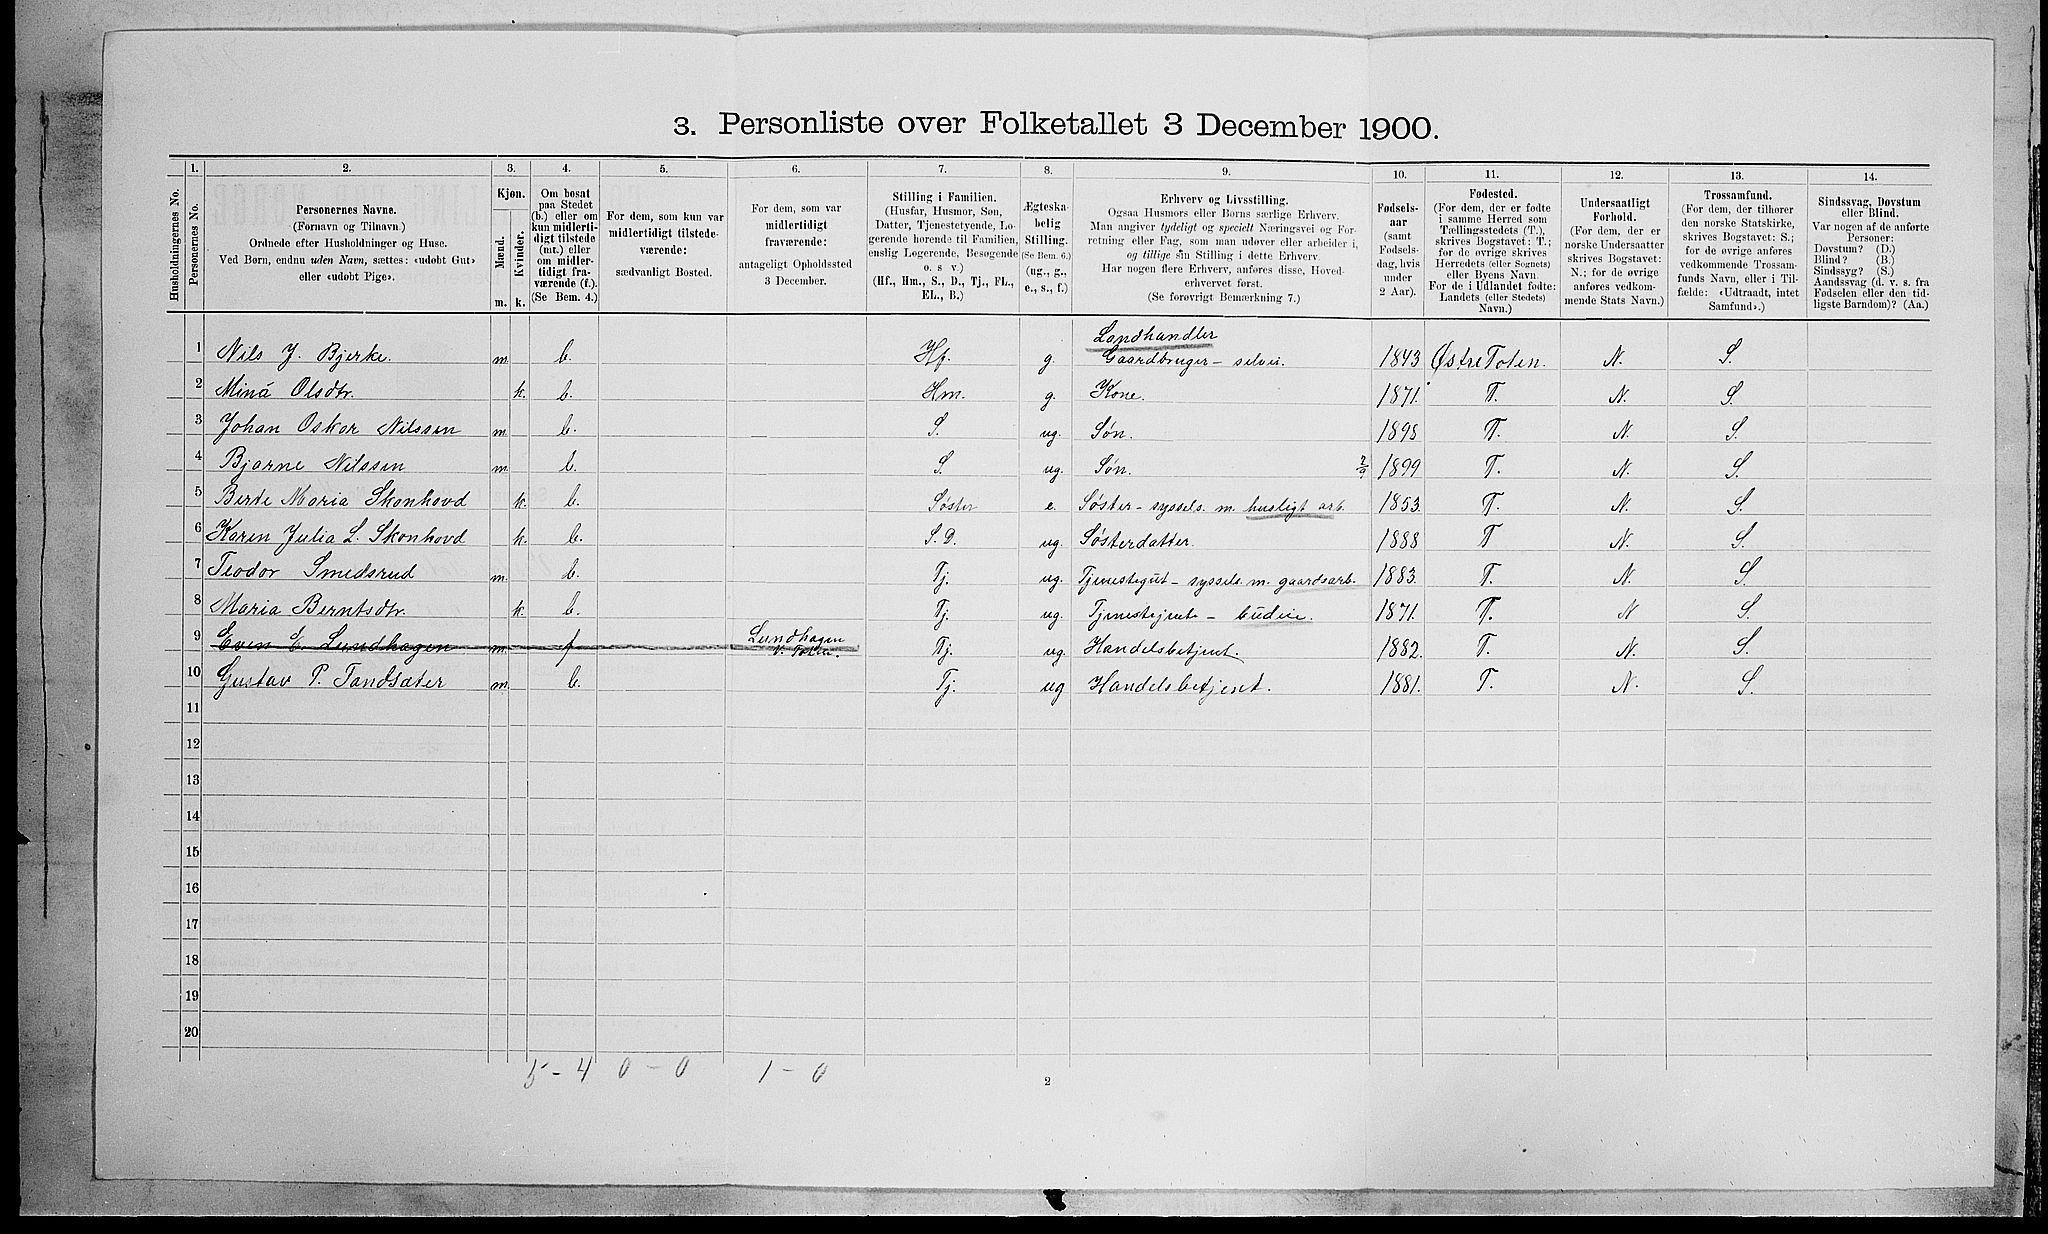 3. Personliste over Folketallet 3 December 1900.
Husholdningernes No.
1. Personernes No.
2. Personernes Navne.
(Fornavn og Tilnavn.)
Ordnede efter Husholdninger og Huse.
Ved Børn, endnu uden Navn, sættes: «udøbt Gut»
eller «udøbt Pige».
3. Kjøn.
Mænd. m.
Kvinder. k.
4. Om bosat
paa Stedet
(b.) eller om
kun midlerti-
digt tilstede
(mt.) eller
om midler-
tidigt fra-
værende (f.).
(Se Bem. 4.)
5. For dem, som kun var
midlertidigt tilstede-
værende:
sædvanligt Bosted.
6. For dem, som var
midlertidigt
fraværende:
antageligt Opholdssted
3 December.
7. Stilling i Familien.
(Husfar, Husmor, Søn,
Datter, Tjenestetyende, Lo-
gerende hørende til Familien,
enslig Logerende, Besøgende
o. s v.)
(Hf., Hm., S., D., Tj., FL.,
EL., B.)
8. Ægteska-
belig
Stilling.
(Se Bem. 6.)
(ug., g.,
e., s., f.)
9. Erhverv og Livsstilling.
Ogsaa Husmors eller Børns særlige Erhverv.
Man angiver tydeligt og specielt Næringsvei og For-
retning eller Fag, som man udøver eller arbeider i,
og tillige sin Stilling i dette Erhverv.
Har nogen flere Erhverv, anføres disse, Hoved-
erhvervet først.
(Se forøvrigt Bemærkning 7.)
10. Fødsels-
aar
(samt
Fødsels-
dag, hvis
under
2 Aar).
11. Fødested.
(For dem, der er fødte
i samme Herred som
Tællingsstedets (T.),
skrives Bogstavet: T.;
for de øvrige skrives
Herredets (eller Sognets)
eller Byens Navn.
For de i Udlandet fødte:
Landets (eller Stedets)
Navn.)
12. Undersaatligt
Forhold.
(For dem, der er
norske Undersaatter
skrives Bogstavet:
N.; for de øvrige
anføres vedkom-
mende Stats Navn.)
13. Trossamfund.
(For dem, der tilhører
den norske Statskirke,
skrives Bogstavet: S.;
for de øvrige anføres
vedkommende Trossam-
funds Navn, eller i Til-
fælde: «Udtraadt, intet
Samfund».)
14. Sindssvag, Døvstum
eller Blind.
Var nogen af de anførte
Personer:
Døvstum? (D.)
Blind? (B.)
Sindssyg? (S.)
Aandssvag (d. v. s. fra
Fødselen eller den tid-
ligste Barndom)? (Aa.)
Landhandler
1 Nils J. Bjerke. m. b. Hf. g. Gaardbruger - selvei. 1843 Østre Toten. N. S.
2 Mina Olsdtr. k. b. Hm. g. Kone. 1871. T. N. S.
3 Johan Oskar Nilssen m. b. S. ug. Søn. 1898 T. N. S.
4 Bjarne Nilssen m. b. S. ug. Søn. 2/9 1899 T. N. S.
5 Berte Maria Skonhovd k. b. Søster e. Søster - syssels. m. husligt arb. 1853. T. N. S.
6 Karen Julia L. Skonhovd k. b. S. D. ug. Søsterdatter. 1888 T N. S.
7 Teodor Smedsrud m. b. Tj. ug. Tjenestegut - syssels. m. gaardsarb. 1883. T. N. S.
8 Maria Berntsdtr. k. b. Tj. ug. Tjenestejente - budeie. 1871. T. N S.
9 Even E. Lundhagen m. f Lundhagen V. Toten. Tj. ug. Handelsbetjent. 1882. T. N. S
10 Gustav P. Tandsæter m. b. Tj. ug Handelsbetjent. 1881. T. N. S.
11
12
13
14
15
16
17
18
19
20
5 - 4 0 - 0 1 - 0
2